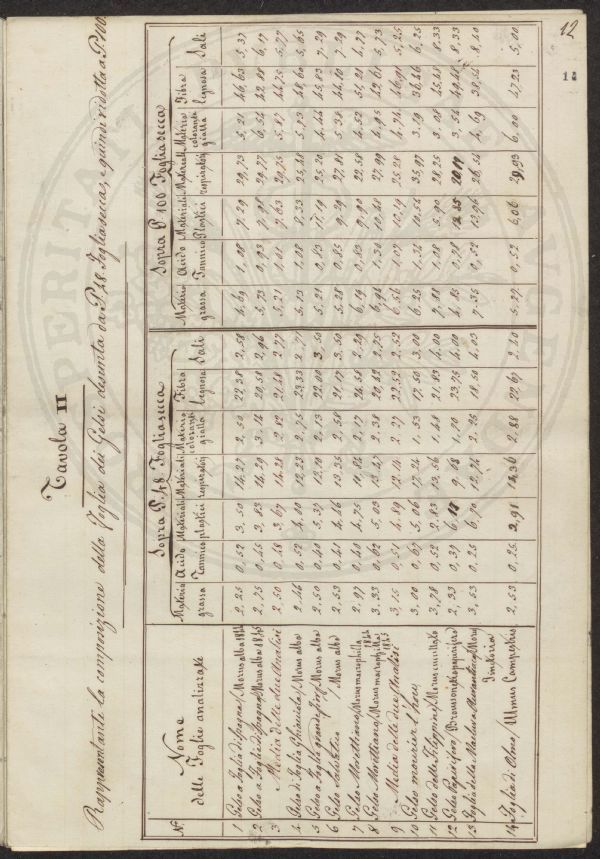 12
11
Tavola II
Rappresentante la composizione della foglia dei Gelsi desunta da P. 48 Foglia secca, e quindi ridotta a P. 100.
N.° Nome delle Foglie analizzate
Sopra P. 48 Foglia secca
Materia grassa Acido Tannico Materiali plastici Materiali respiratorj Materia colorante gialla Fibra legnosa Sali
Sopra P. 100 Foglia secca
Materia grassa Acido Tannico Materiali Plastici Materiali respiratorj Materia colorante gialla Fibra legnosa Sali
1 Gelso a foglia di Spagna / Morus alba 1844 2,25 0,52 3,50 14,27 2,50 22,38 2,58 4,69 1,08 7,29 29,73 5,21 46,63 5,37
2 Gelso a foglia di Spagna / Morus alba 1845 2,75 0,45 3,83 14,29 3,14 20,58 2,96 5,73 0,93 7,98 29,77 6,54 42,88 6,17
3 Media delle due Analisi 2,50 0,48 3,67 14,28 2,82 21,48 2,77 5,21 1,01 7,63 29,75 5,87 44,75 5,77
4 Gelso di foglia Ghiacciola / Morus alba 2,46 0,52 4,00 12,23 2,75 23,33 2,71 5,13 1,08 8,33 25,48 5,73 48,60 5,65
5 Gelso a foglia grande / Morus alba 2,50 0,40 5,37 12,10 2,13 22,00 3,50 5,21 0,83 11,19 25,20 4,44 45,83 7,29
6 Gelso Salvatico / Morus alba 2,53 0,41 4,46 13,35 2,58 21,17 3,50 5,28 0,85 9,29 27,81 5,38 44,10 7,29
7 Gelso Morettiano / Morus macrophilla 1844 2,97 0,40 4,75 10,84 2,17 24,58 2,29 6,19 0,83 9,90 22,58 4,52 51,21 4,77
8 Gelso Morettiano / Morus macrophilla 1845 3,33 0,62 5,03 13,47 2,38 20,42 2,75 6,94 1,30 10,48 27,99 4,95 42,61 5,73
9 Media delle due Analisi 3,15 0,51 4,89 12,14 2,27 22,52 2,52 6,56 1,07 10,19 25,28 4,74 46,91 5,25
10 Gelso mourier l hou 3,00 0,67 5,06 17,24 1,53 17,50 3,00 6,25 1,36 10,54 35,97 3,19 36,46 6,25
11 Gelso delle Filippine / Morus cucullata 3,78 0,52 2,83 13,56 1,48 21,83 4,00 7,88 1,08 5,90 28,25 3,08 45,48 8,33
12 Gelso Papirifero / Broussonetia papirifera 2,33 0,37 6,17 9,68 1,70 23,75 4,00 4,85 0,78 12,85 20,17 3,54 49,48 8,33
13 Foglia della Maclura Aurantiaca / Morus Tinctoria 3,53 0,25 6,70 12,74 2,25 18,50 4,03 7,35 0,52 13,96 26,54 4,69 38,54 8,40
14 Foglia di Olmo / Ulmus Campestris 2,53 0,25 2,91 14,36 2,88 22,67 2,40 5,27 0,52 6,06 29,93 6,00 47,23 5,00